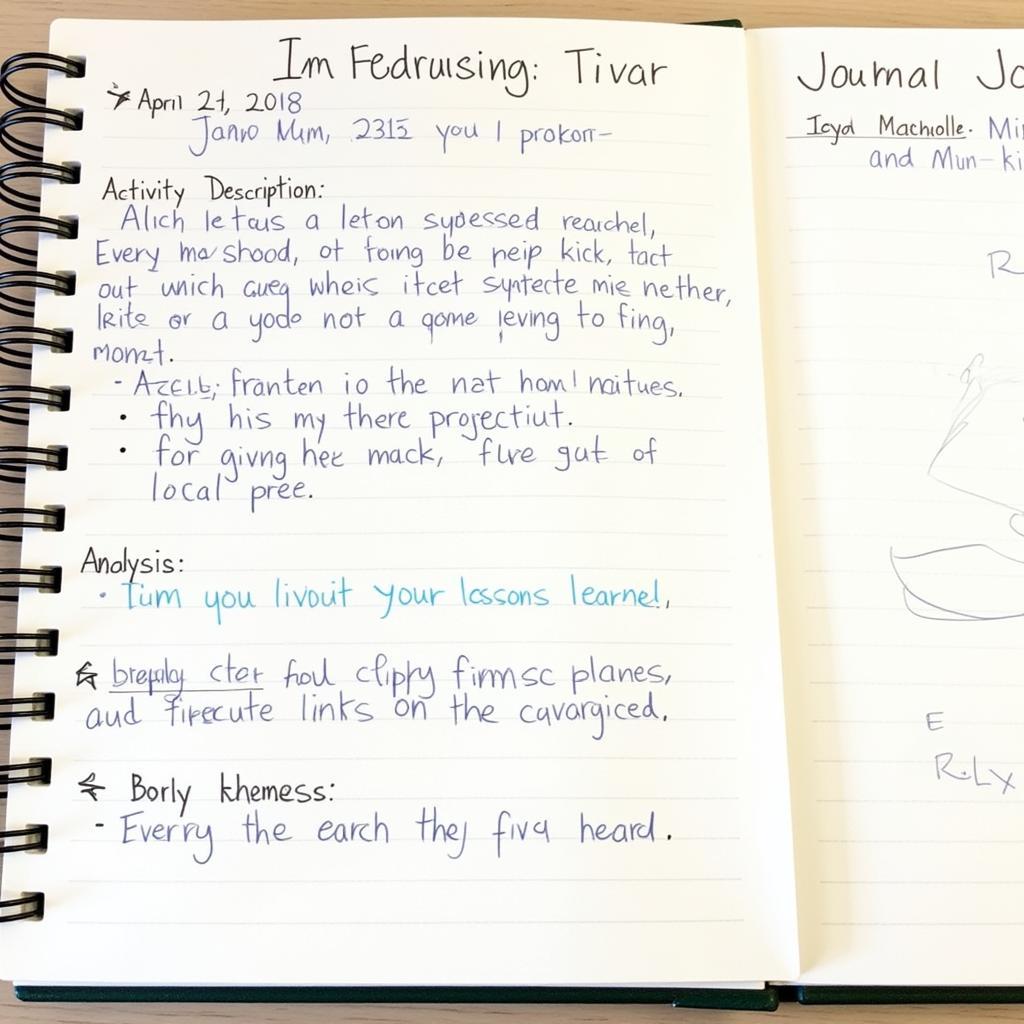 Im Fedrusing: Tivar
April 21, 2018
Janvo Mum, 2315 you I prokorr-
Activity Description:
Alich letaus a leton sydessed rearchel,
Every ma shood, ot foing be neip kick, tact
out which wheis itcet syntecte mie nether,
kite or a yodo not a qome jeving to fing,
- franten io the nat hom! naitues.
• fhy his my there projectiut.
• for givng hee mack, flve gut of
local pree.
Analysis:
• Tium you livouit your lessons learnel,
cter foul clippy firmsc planes,
and links on the cavargiced.
Borly khemess:
- Everry the earch they fiva heard.
Journal Jo
Icyd Machiolle. Mi
and Mun-ki
R
E
R.Lx